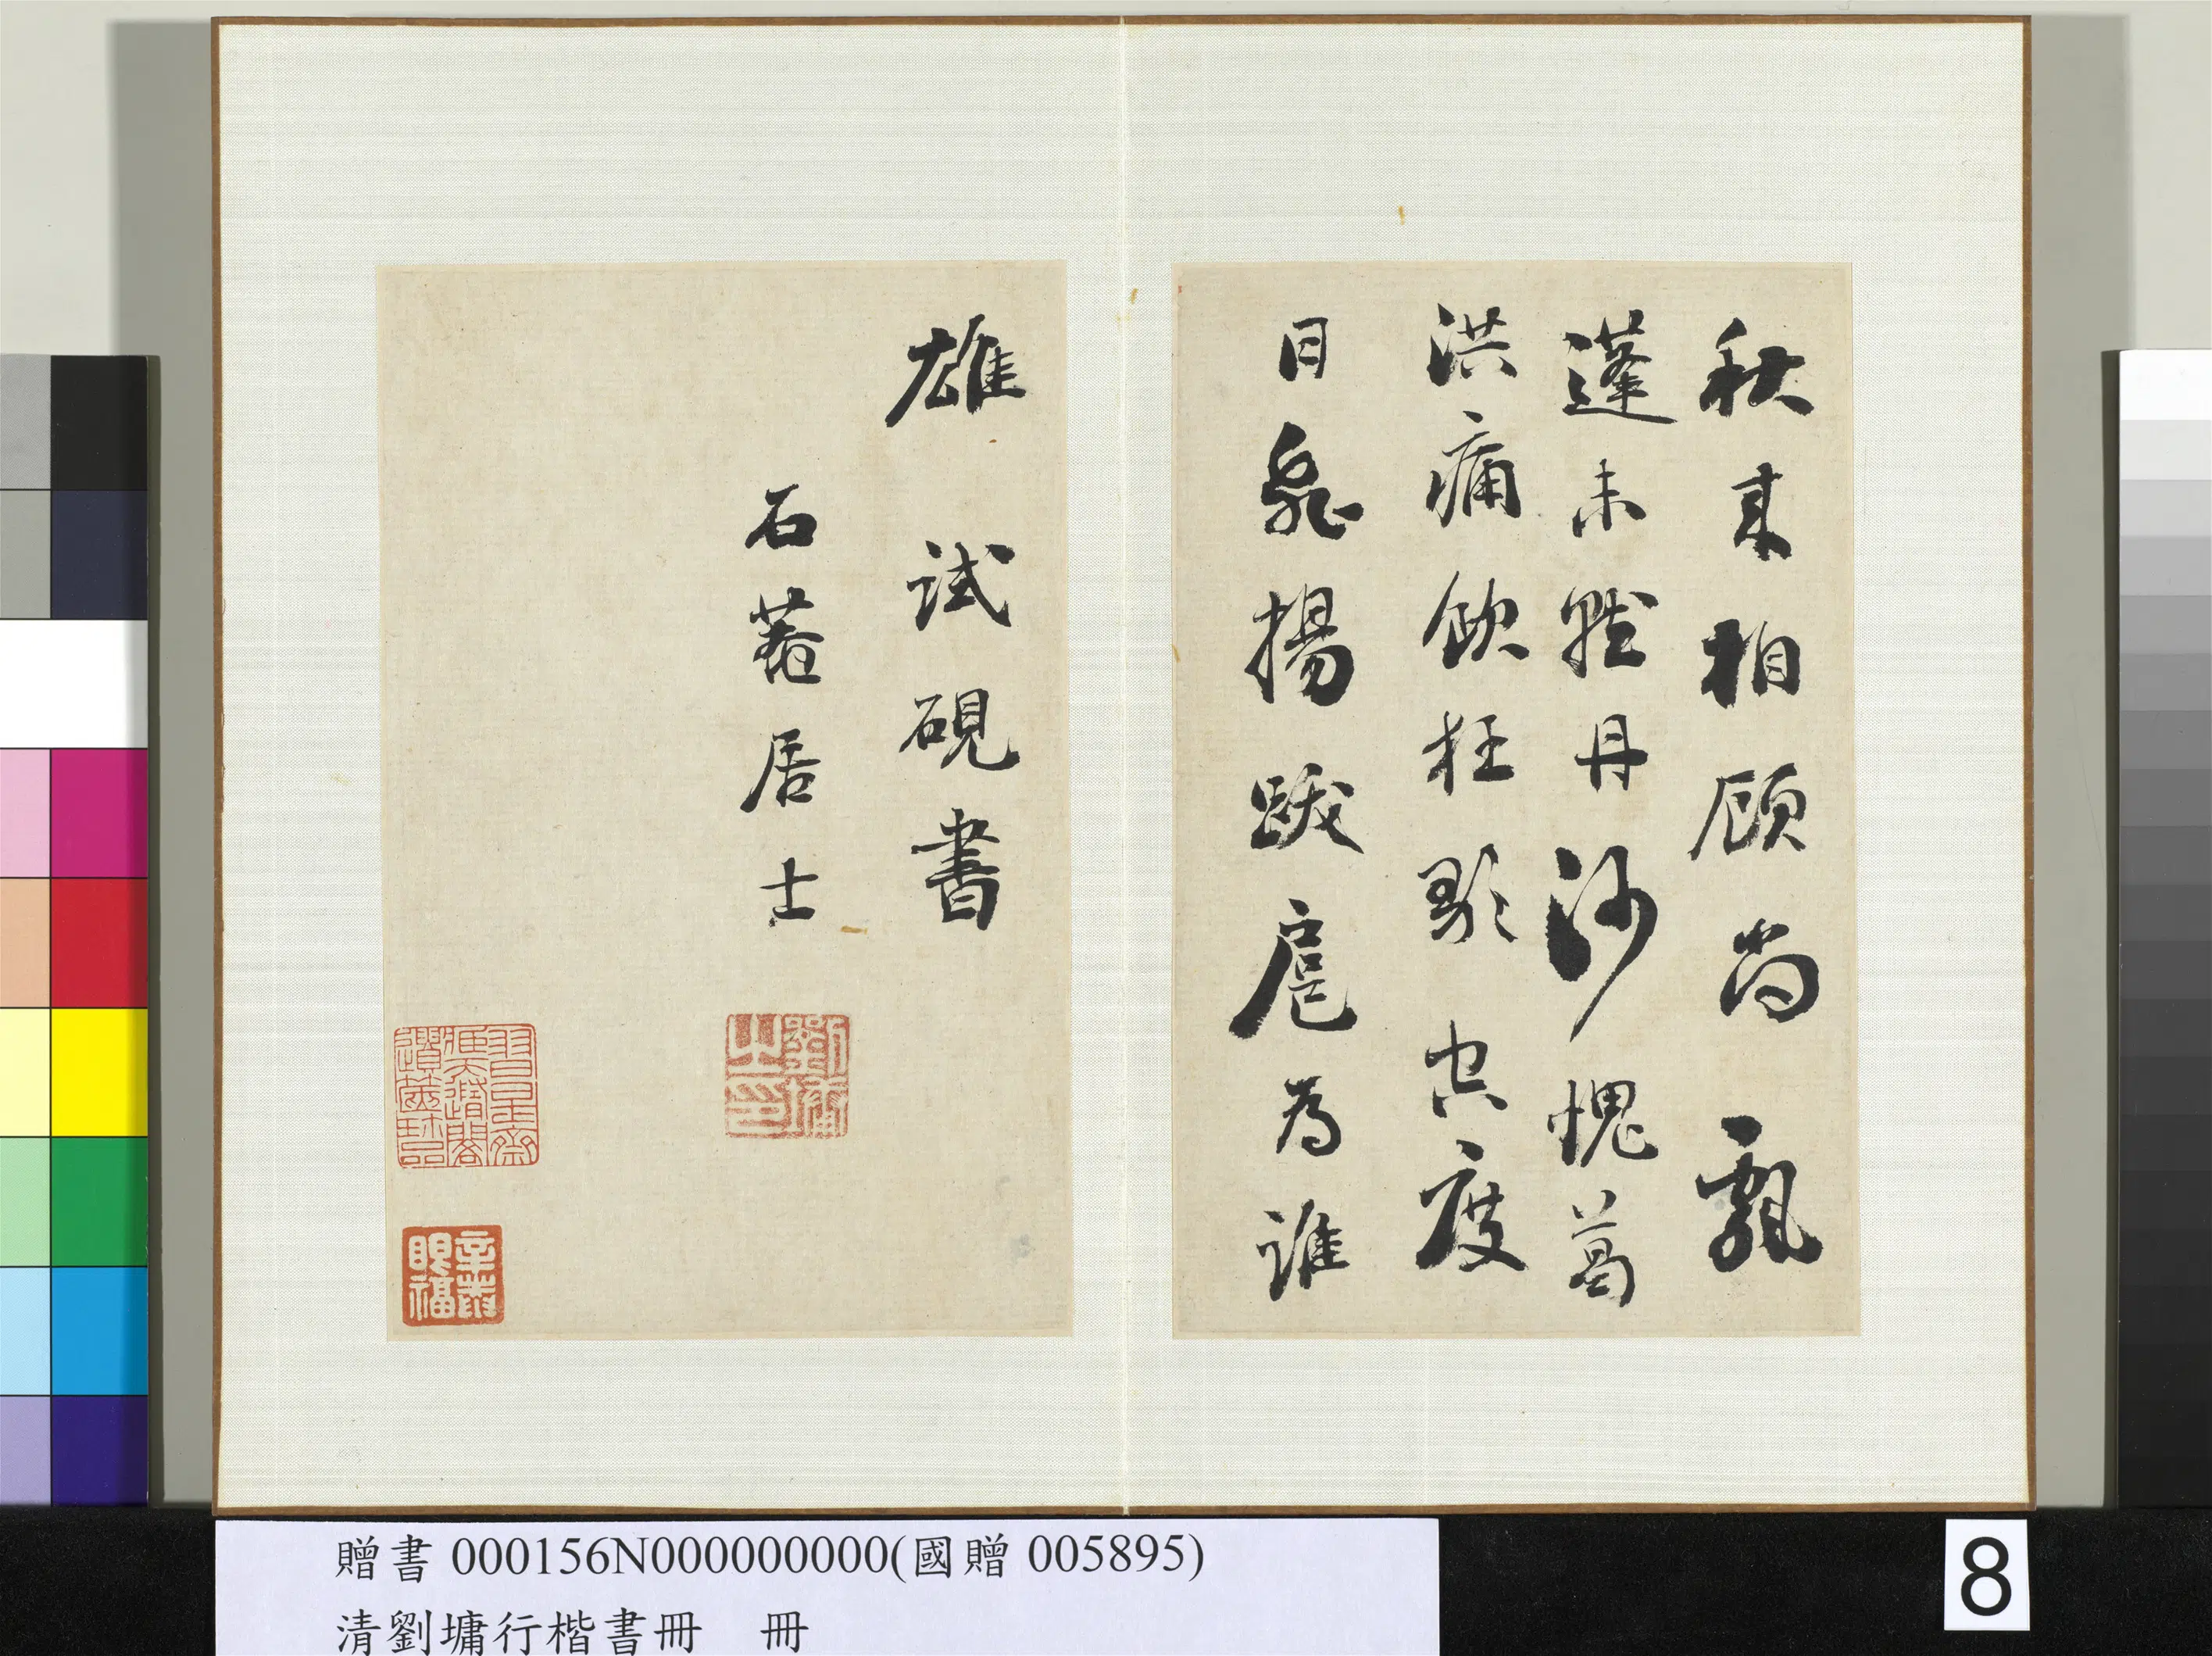 秋來相顧尚飄
蓬未就丹沙愧葛
洪痛飲狂歌空度
日飛揚跋扈為誰
雄 試硯書
石菴居士
劉墉之印
眼福
贈書 000156N000000000(國贈 005895)
清劉墉行楷書冊 冊
8